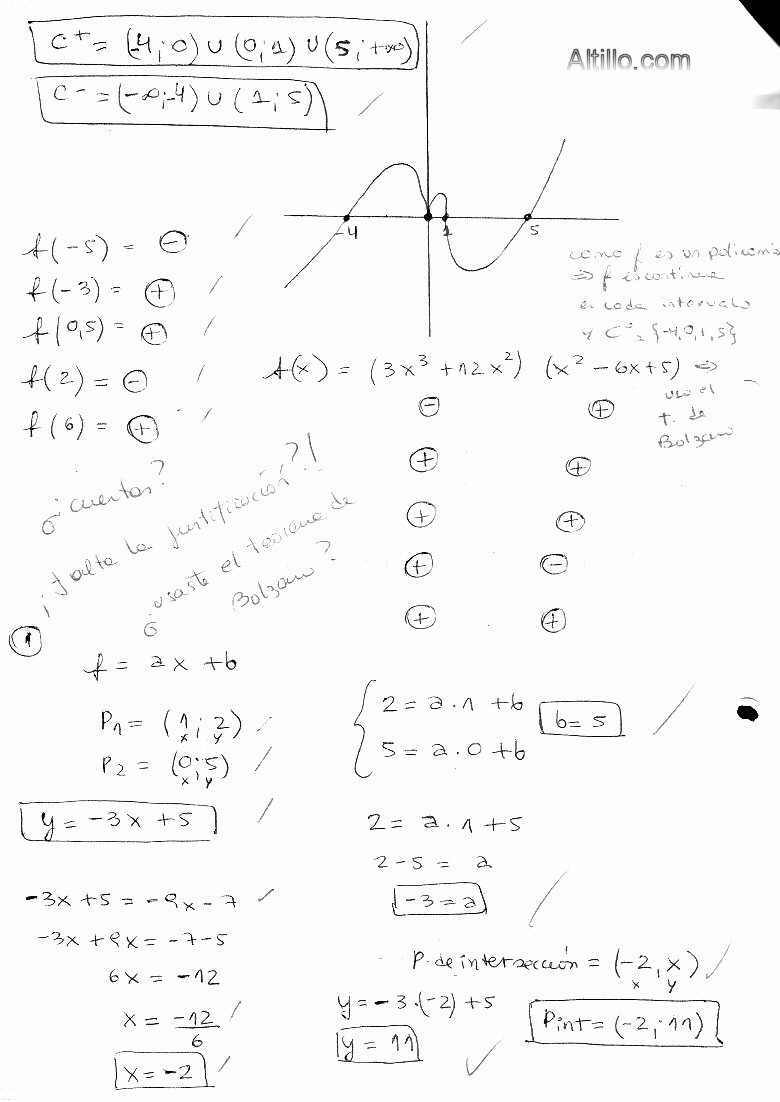 C+ = (-4; 0) ∪ (0; 1) ∪ (5; +∞)
C- = (-∞; -4) ∪ (1; 5)
Altillo.com
-4 1 5
f(-5) = ⊖
f(-3) = ⊕
f(0,5) = ⊕
f(2) = ⊖
f(6) = ⊕
como f es un polinomio
⇒ f es continua
en cada intervalo
y C° = {-4, 0, 1, 5}
f(x) = (3x³ + 12x²) (x² - 6x + 5) ⇒
uso el
t. de
Bolzano
⊖ ⊕
⊕ ⊕
⊕ ⊕
⊕ ⊖
⊕ ⊕
¿cuentas?
¡falta la justificación?!
¿usaste el teorema de
Bolzano?
1
f = ax + b
P1 = (1; 2)
x y
P2 = (0; 5)
x y
y = -3x + 5
2 = a . 1 + b
5 = a . 0 + b
b = 5
2 = a . 1 + 5
2 - 5 = a
-3 = a
-3x + 5 = -9x - 7
-3x + 9x = -7 - 5
6x = -12
x = -12/6
x = -2
P. de intersección = (-2, x)
x y
y = -3 . (-2) + 5
y = 11
Pint = (-2; 11)